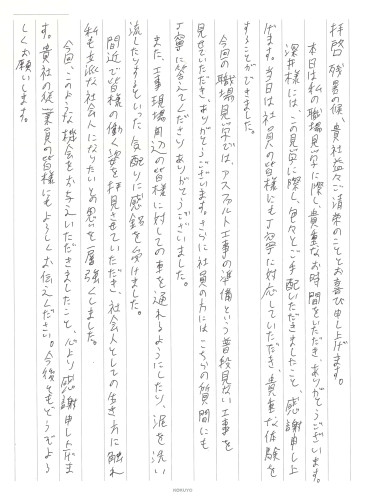 拝啓 残暑の候、貴社益々ご清栄のこととお喜び申し上げます。
本日は私の職場見学に際し、貴重なお時間をいただき、ありがとうございます。
深井様には、この見学に際し、色々とご手配いただきましたこと、感謝申し上
げます。当日は社員の皆様にも丁寧に対応していただき、貴重な体験を
することができました。
今回の職場見学では、アスファルト工事の準備という普段見ない工事を
見せていただき、ありがとうございます。さらに社員の方にはこちらの質問にも
丁寧に答えてくださりありがとうございました。
また、工事現場周辺の皆様に対しての車を通れるようにしたり、泥を洗い
流したりするといった気配りに感銘を受けました。
間近で皆様の働く姿を拝見させていただき、社会人としての生き方に触れ
私も立派な社会人になりたいとの思いを一層強くしました。
今回、このような機会をお与えいただきましたこと、心より感謝申し上げま
す。貴社の従業員の皆様にもよろしくお伝えください。今後ともどうぞよろ
しくお願いします。
KOKUYO